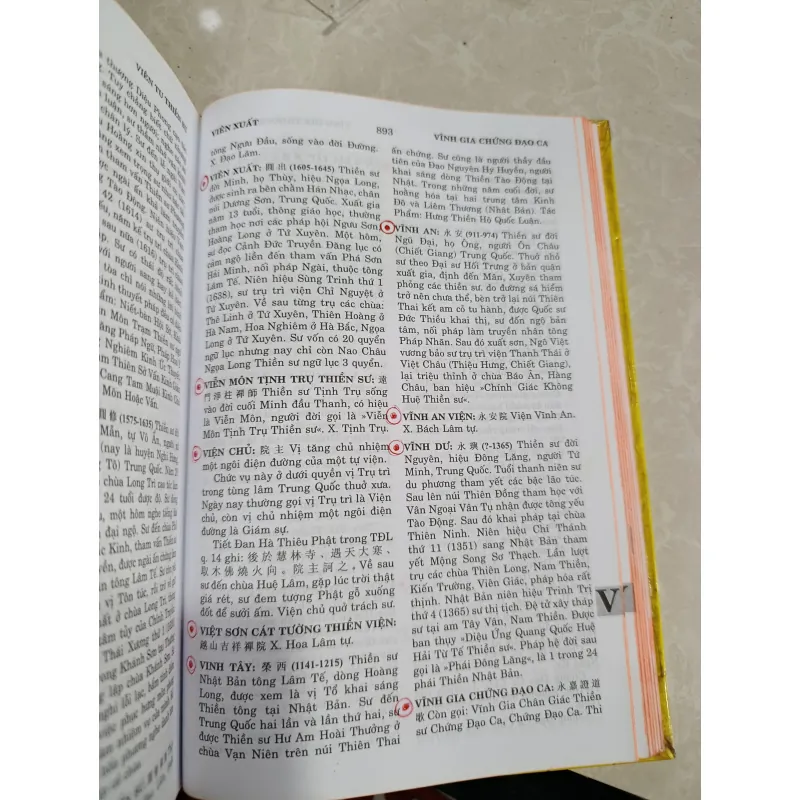 VIÊN TU THIỀN SƯ
VIÊN XUẤT
893
VĨNH GIA CHỨNG ĐẠO CA
tông Ngưu Đầu, sống vào đời Đường.
X. Đạo Lâm.
VIÊN XUẤT: (1605-1645) Thiền sư
đời Minh, họ Thủy, hiệu Ngọa Long,
được sinh ra bên chằm Hán Nhạc, chân
núi Dương Sơn, Trung Quốc. Xuất gia
năm 13 tuổi, thông giáo học, thường
tham học nơi các pháp hội Ngưu Sơn,
Hoàng Long ở Tứ Xuyên. Một hôm,
sư đọc Cảnh Đức Truyền Đăng lục có
cảm ngộ liền đến tham vấn Phá Sơn
Hải Minh, nối pháp Ngài, thuộc tông
Lâm Tế. Niên hiệu Sùng Trinh thứ 1
(1638), sư trụ trì viện Chỉ Nguyệt ở
Tứ Xuyên. Về sau từng trụ các chùa:
Thê Linh ở Tứ Xuyên, Thiên Hoàng ở
Hà Nam, Hoa Nghiêm ở Hà Bắc, Ngọa
Long ở Tứ Xuyên. Sư vốn có 20 quyển
ngữ lục nhưng nay chỉ còn Nao Châu
Ngọa Long Thiền sư ngữ lục 3 quyển.
VIỄN MÔN TỊNH TRỤ THIỀN SƯ: 遠
門淨柱禪師 Thiền sư Tịnh Trụ sống
vào đời Cuối Minh đầu Thanh, có hiệu
là Viễn Môn, người đời gọi là »Viễn
Môn Tịnh Trụ Thiền sư«. X. Tịnh Trụ.
VIỆN CHỦ: 院主 Vị tăng chủ nhiệm
một ngôi điện đường của một tự viện.
Chức vụ này ở dưới quyền vị Trụ trì
trong tùng lâm Trung Quốc thuở xưa.
Ngày nay thường gọi vị Trụ trì là Viện
chủ, còn vị chủ nhiệm một ngôi điện
đường là Giám sự.
Tiết Đan Hà Thiêu Phật trong TĐL
q. 14 ghi: 後於慧林寺、遇天大寒、
取木佛燒火向。院主訶之。Về sau
sư đến chùa Huệ Lâm, gặp lúc trời thật
giá rét, sư đem tượng Phật gỗ xuống
đốt để sưởi ấm. Viện chủ quở trách sư.
VIỆT SƠN CÁT TƯỜNG THIỀN VIỆN:
越山吉祥禪院 X. Hoa Lâm tự.
VINH TÂY: 榮西 (1141-1215) Thiền sư
Nhật Bản tông Lâm Tế, dòng Hoàng
Long, được xem là vị Tổ khai sáng
Thiền tông tại Nhật Bản. Sư đến
Trung Quốc hai lần và lần thứ hai, sư
được Thiền sư Hư Am Hoài Thưởng ở
chùa Vạn Niên trên núi Thiên Thai
ấn chứng. Sư cũng là người thầy đầu
tiên của Đạo Nguyên Hy Huyền, người
khai sáng dòng Thiền Tào Động tại
Nhật. Trong những năm cuối đời, sư
hoằng hóa tại hai trung tâm Kinh
Đô và Liêm Thương (Nhật Bản). Tác
Phẩm: Hưng Thiền Hộ Quốc Luận.
VĨNH AN: 永安 (911-974) Thiền sư đời
Ngũ Đại, họ Ông, người Ôn Châu
(Chiết Giang) Trung Quốc. Thuở nhỏ
sư theo Đại sư Hối Trưng ở bản quận
xuất gia, định đến Mân, Xuyên tham
phỏng các thiền sư. do đường sá hiểm
trở nên chưa thể, bèn trở lại núi Thiên
Thai kết am cỏ tu hành, được Quốc sư
Đức Thiều khai thị, sư đốn ngộ bản
tâm, nối pháp làm truyền nhân tông
Pháp Nhãn. Sau đó xuất sơn, Ngô Việt
vương bảo sư trụ trì viện Thanh Thái ở
Việt Châu (Thiệu Hưng, Chiết Giang),
lại triệu thỉnh ở chùa Báo Ân, Hàng
Châu, ban hiệu »Chính Giác Không
Huệ Thiền sư«.
VĨNH AN VIỆN: 永安院 Viện Vĩnh An.
X. Bách Lâm tự.
VĨNH DƯ: 永璵 (?-1365) Thiền sư đời
Nguyên, hiệu Đông Lăng, người Tứ
Minh, Trung Quốc. Tuổi thanh niên sư
du phương tham yết các bậc lão túc.
Sau lên núi Thiên Đồng tham học với
Vân Ngoại Vân Tụ nhận được tông yếu
Tào Động. Sau đó khai pháp tại chùa
Thiên Ninh. Niên hiệu Chí Thánh
thứ 11 (1351) sang Nhật Bản tham
yết Mộng Song Sơ Thạch. Lần lượt
trụ các chùa Thiên Long, Nam Thiền,
Kiến Trường, Viên Giác, pháp hóa rất
thịnh. Nhật Bản niên hiệu Trinh Trị
thứ 4 (1365) sư thị tịch. Đệ tử xây tháp
sư tại am Tây Vân, Nam Thiền. Được
ban thụy »Diệu Ứng Quang Quốc Huệ
Hải Từ Tế Thiền sư«. Pháp hệ đời sau
gọi là »Phái Đông Lăng«, là 1 trong 24
phái Thiền Nhật Bản.
VĨNH GIA CHỨNG ĐẠO CA: 永嘉證道
歌 Còn gọi: Vĩnh Gia Chân Giác Thiền
sư Chứng Đạo Ca, Chứng Đạo Ca. Thi
V